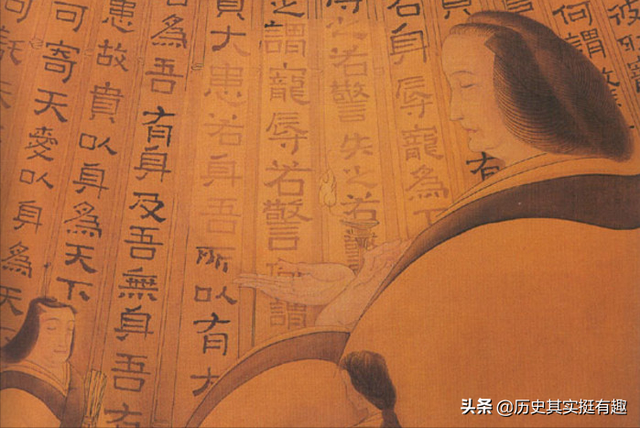 何謂
有
若身辱寵為下
之若警失之若警
之謂寵辱若警何謂
大患若身吾所以有大
為吾有身及吾無身吾有
患故貴以身為天下
可寄天愛以身為天
头条 @历史其实挺有趣